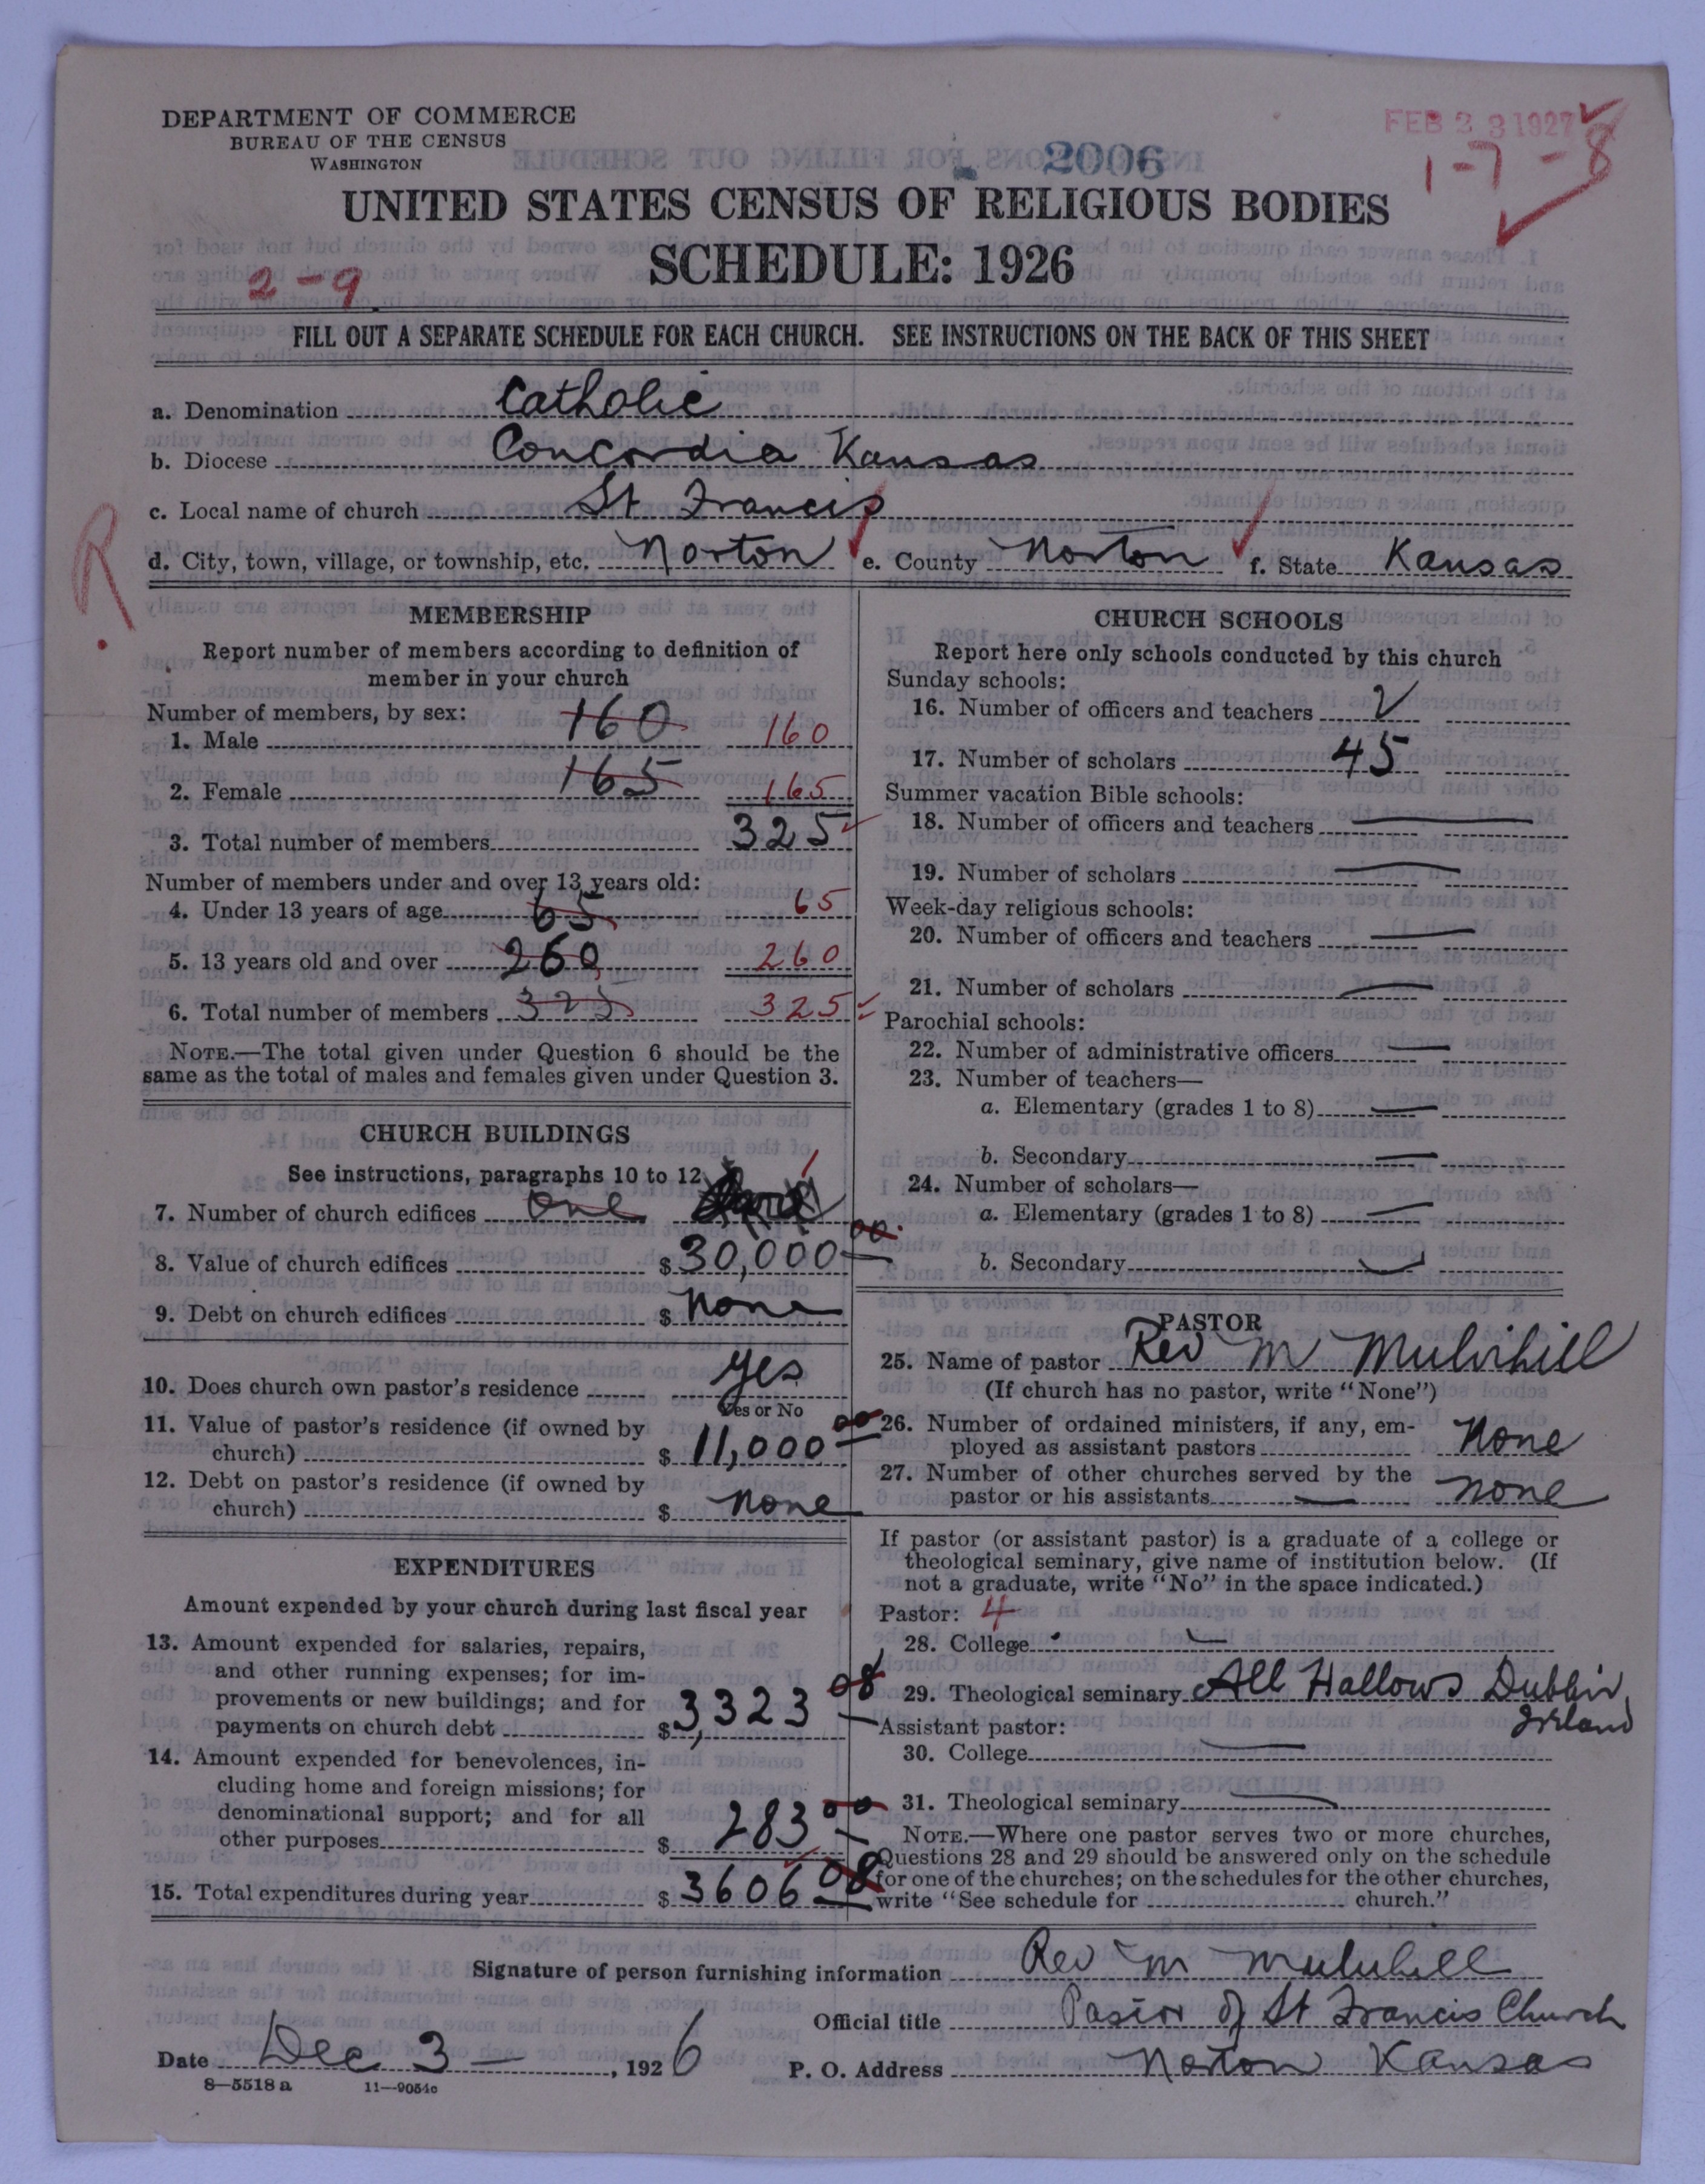 DEPARTMENT OF COMMERCE
BUREAU OF THE CENSUS
WASHINGTON
FEB 23 1927
2006
1-7-8
UNITED STATES CENSUS OF RELIGIOUS BODIES
SCHEDULE: 1926
2-9
FILL OUT A SEPARATE SCHEDULE FOR EACH CHURCH. SEE INSTRUCTIONS ON THE BACK OF THIS SHEET
a. Denomination Catholic
b. Diocese Concordia Kansas
c. Local name of church St Francis
R.
d. City, town, village, or township, etc. Norton e. County Norton f. State Kansas
MEMBERSHIP
Report number of members according to definition of
member in your church
Number of members, by sex:
1. Male 160 160
2. Female 165 165
3. Total number of members 325
Number of members under and over 13 years old:
4. Under 13 years of age 65 65
5. 13 years old and over 260 260
6. Total number of members 325 325
NOTE.—The total given under Question 6 should be the
same as the total of males and females given under Question 3.
CHURCH BUILDINGS
See instructions, paragraphs 10 to 12
7. Number of church edifices One 1
8. Value of church edifices $ 30,000 00
9. Debt on church edifices $ None
10. Does church own pastor's residence yes
Yes or No
11. Value of pastor's residence (if owned by
church) $ 11,000 00
12. Debt on pastor's residence (if owned by
church) $ none
EXPENDITURES
Amount expended by your church during last fiscal year
13. Amount expended for salaries, repairs,
and other running expenses; for im-
provements or new buildings; and for
payments on church debt $ 3,323 08
14. Amount expended for benevolences, in-
cluding home and foreign missions; for
denominational support; and for all
other purposes $ 283 00
15. Total expenditures during year $ 3606 08
CHURCH SCHOOLS
Report here only schools conducted by this church
Sunday schools:
16. Number of officers and teachers 2
17. Number of scholars 45
Summer vacation Bible schools:
18. Number of officers and teachers —
19. Number of scholars —
Week-day religious schools:
20. Number of officers and teachers —
21. Number of scholars —
Parochial schools:
22. Number of administrative officers —
23. Number of teachers—
a. Elementary (grades 1 to 8) —
b. Secondary —
24. Number of scholars—
a. Elementary (grades 1 to 8) —
b. Secondary —
PASTOR
25. Name of pastor Rev M Mulvihill
(If church has no pastor, write "None")
26. Number of ordained ministers, if any, em-
ployed as assistant pastors None
27. Number of other churches served by the
pastor or his assistants — none
If pastor (or assistant pastor) is a graduate of a college or
theological seminary, give name of institution below. (If
not a graduate, write "No" in the space indicated.)
Pastor: 4
28. College —
29. Theological seminary All Hallows Dublin,
Irland
Assistant pastor:
30. College —
31. Theological seminary —
NOTE.—Where one pastor serves two or more churches,
Questions 28 and 29 should be answered only on the schedule
for one of the churches; on the schedules for the other churches,
write "See schedule for church."
Signature of person furnishing information Rev M Mulvihill
Official title Pastor of St Francis Church
Date Dec 3 — , 1926 P. O. Address Norton Kansas
8—5518 a 11—9054c